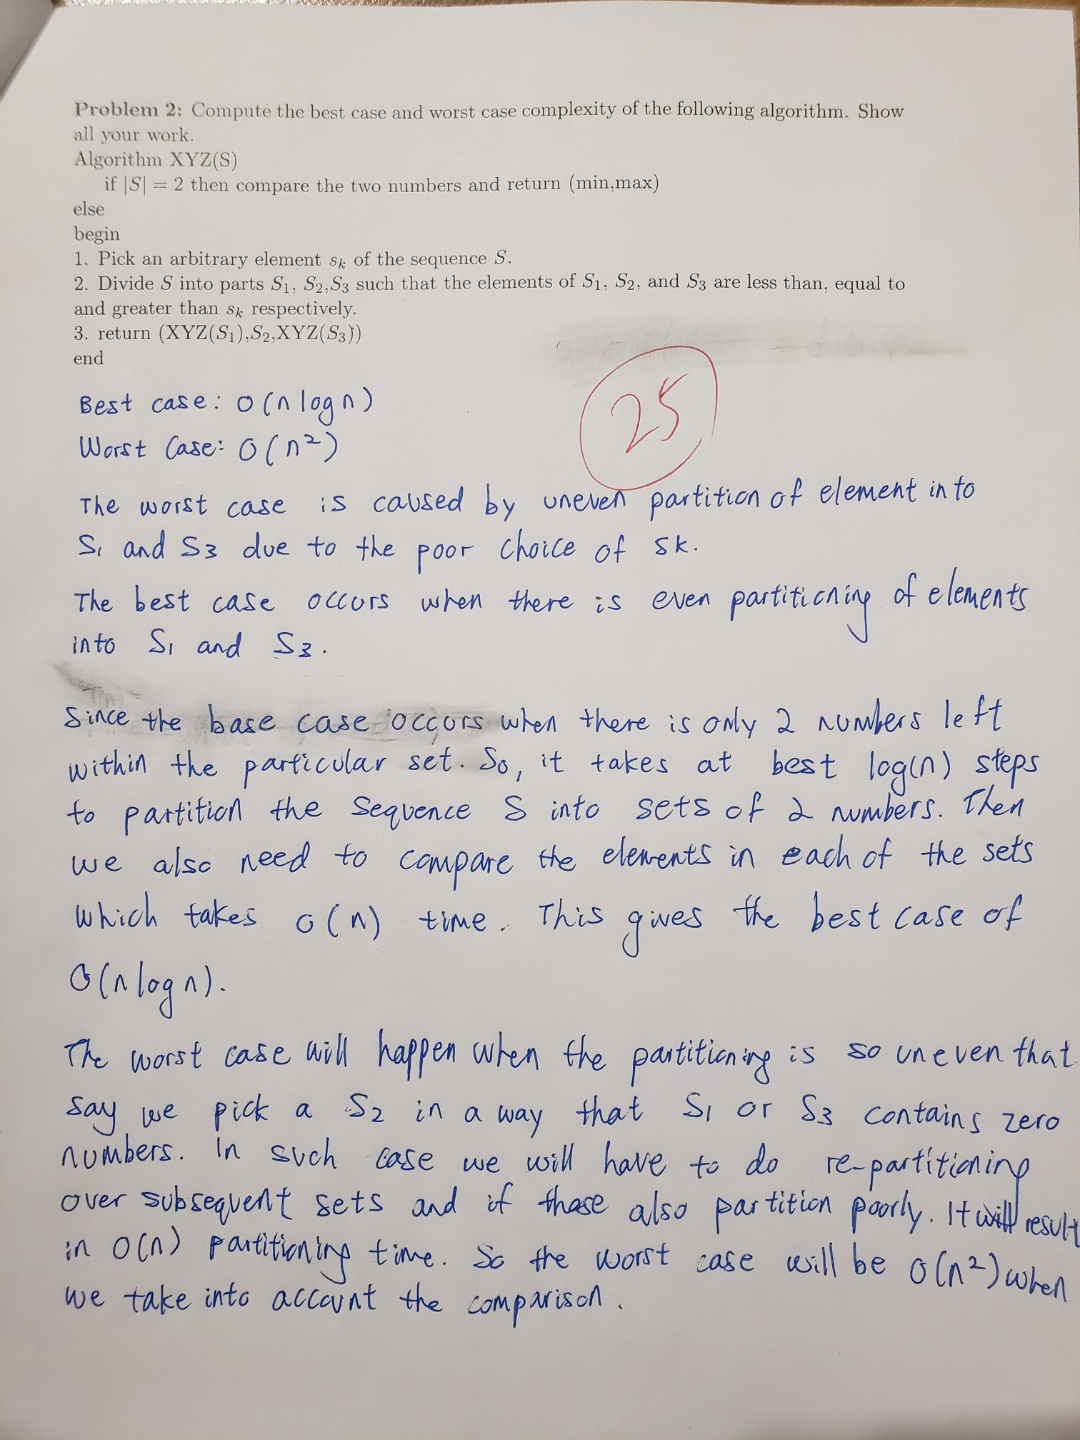 Problem 2: Compute the best case and worst case complexity of the following algorithm. Show
all your work.
Algorithm XYZ(S)
if |S| = 2 then compare the two numbers and return (min,max)
else
begin
1. Pick an arbitrary element sk of the sequence S.
2. Divide S into parts S1, S2,S3 such that the elements of S1, S2, and S3 are less than, equal to
and greater than sk respectively.
3. return (XYZ(S1),S2,XYZ(S3))
end
25
Best case: O(n log n)
Worst Case: O(n²)
The worst case is caused by uneven partition of element into
S1 and S3 due to the poor choice of sk.
The best case occurs when there is even partitioning of elements
into S1 and S3.
Since the base case occurs when there is only 2 numbers left
within the particular set. So, it takes at best log(n) steps
to partition the sequence S into sets of 2 numbers. Then
we also need to compare the elements in each of the sets
which takes O(n) time. This gives the best case of
O(n log n).
The worst case will happen when the partitioning is so uneven that
say we pick a S2 in a way that S1 or S3 contains zero
numbers. In such case we will have to do re-partitioning
over subsequent sets and if those also partition poorly. It will result
in O(n) partitioning time. So the worst case will be O(n²) when
we take into account the comparison.